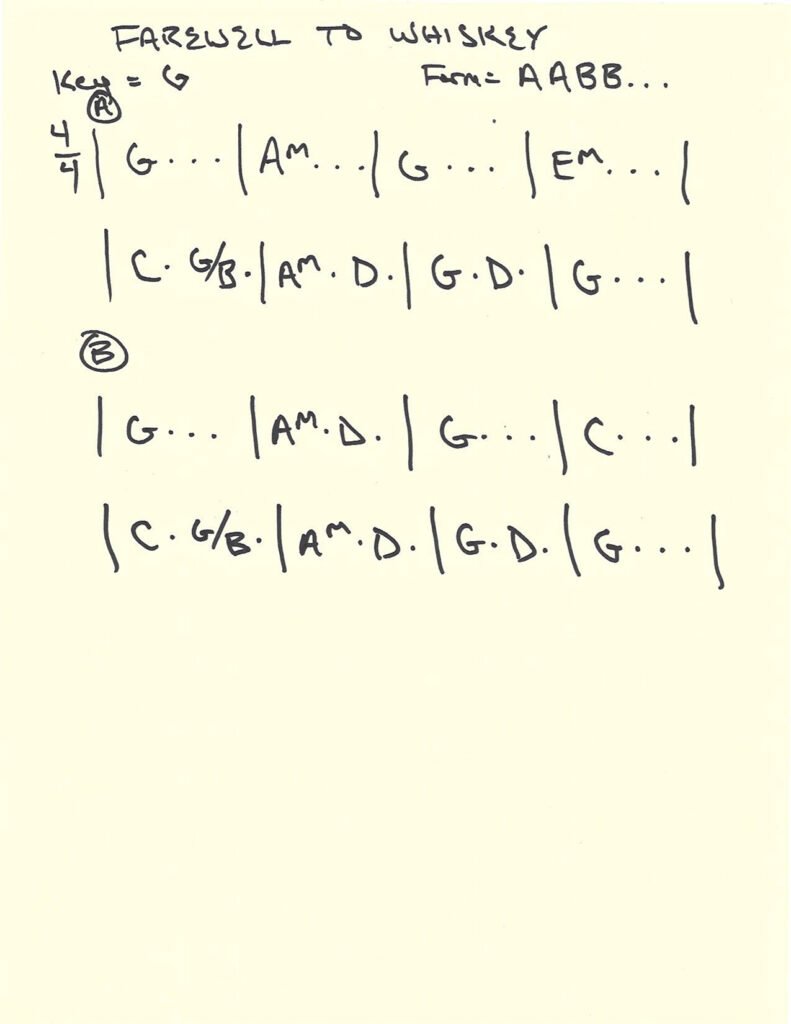 FAREWELL TO WHISKEY
Key = G Form = AABB...
A
4/4 | G . . . | AM . . . | G . . . | EM . . . |
| C . G/B . | AM . D . | G . D . | G . . . |
B
| G . . . | AM . D . | G . . . | C . . . |
| C . G/B . | AM . D . | G . D . | G . . . |